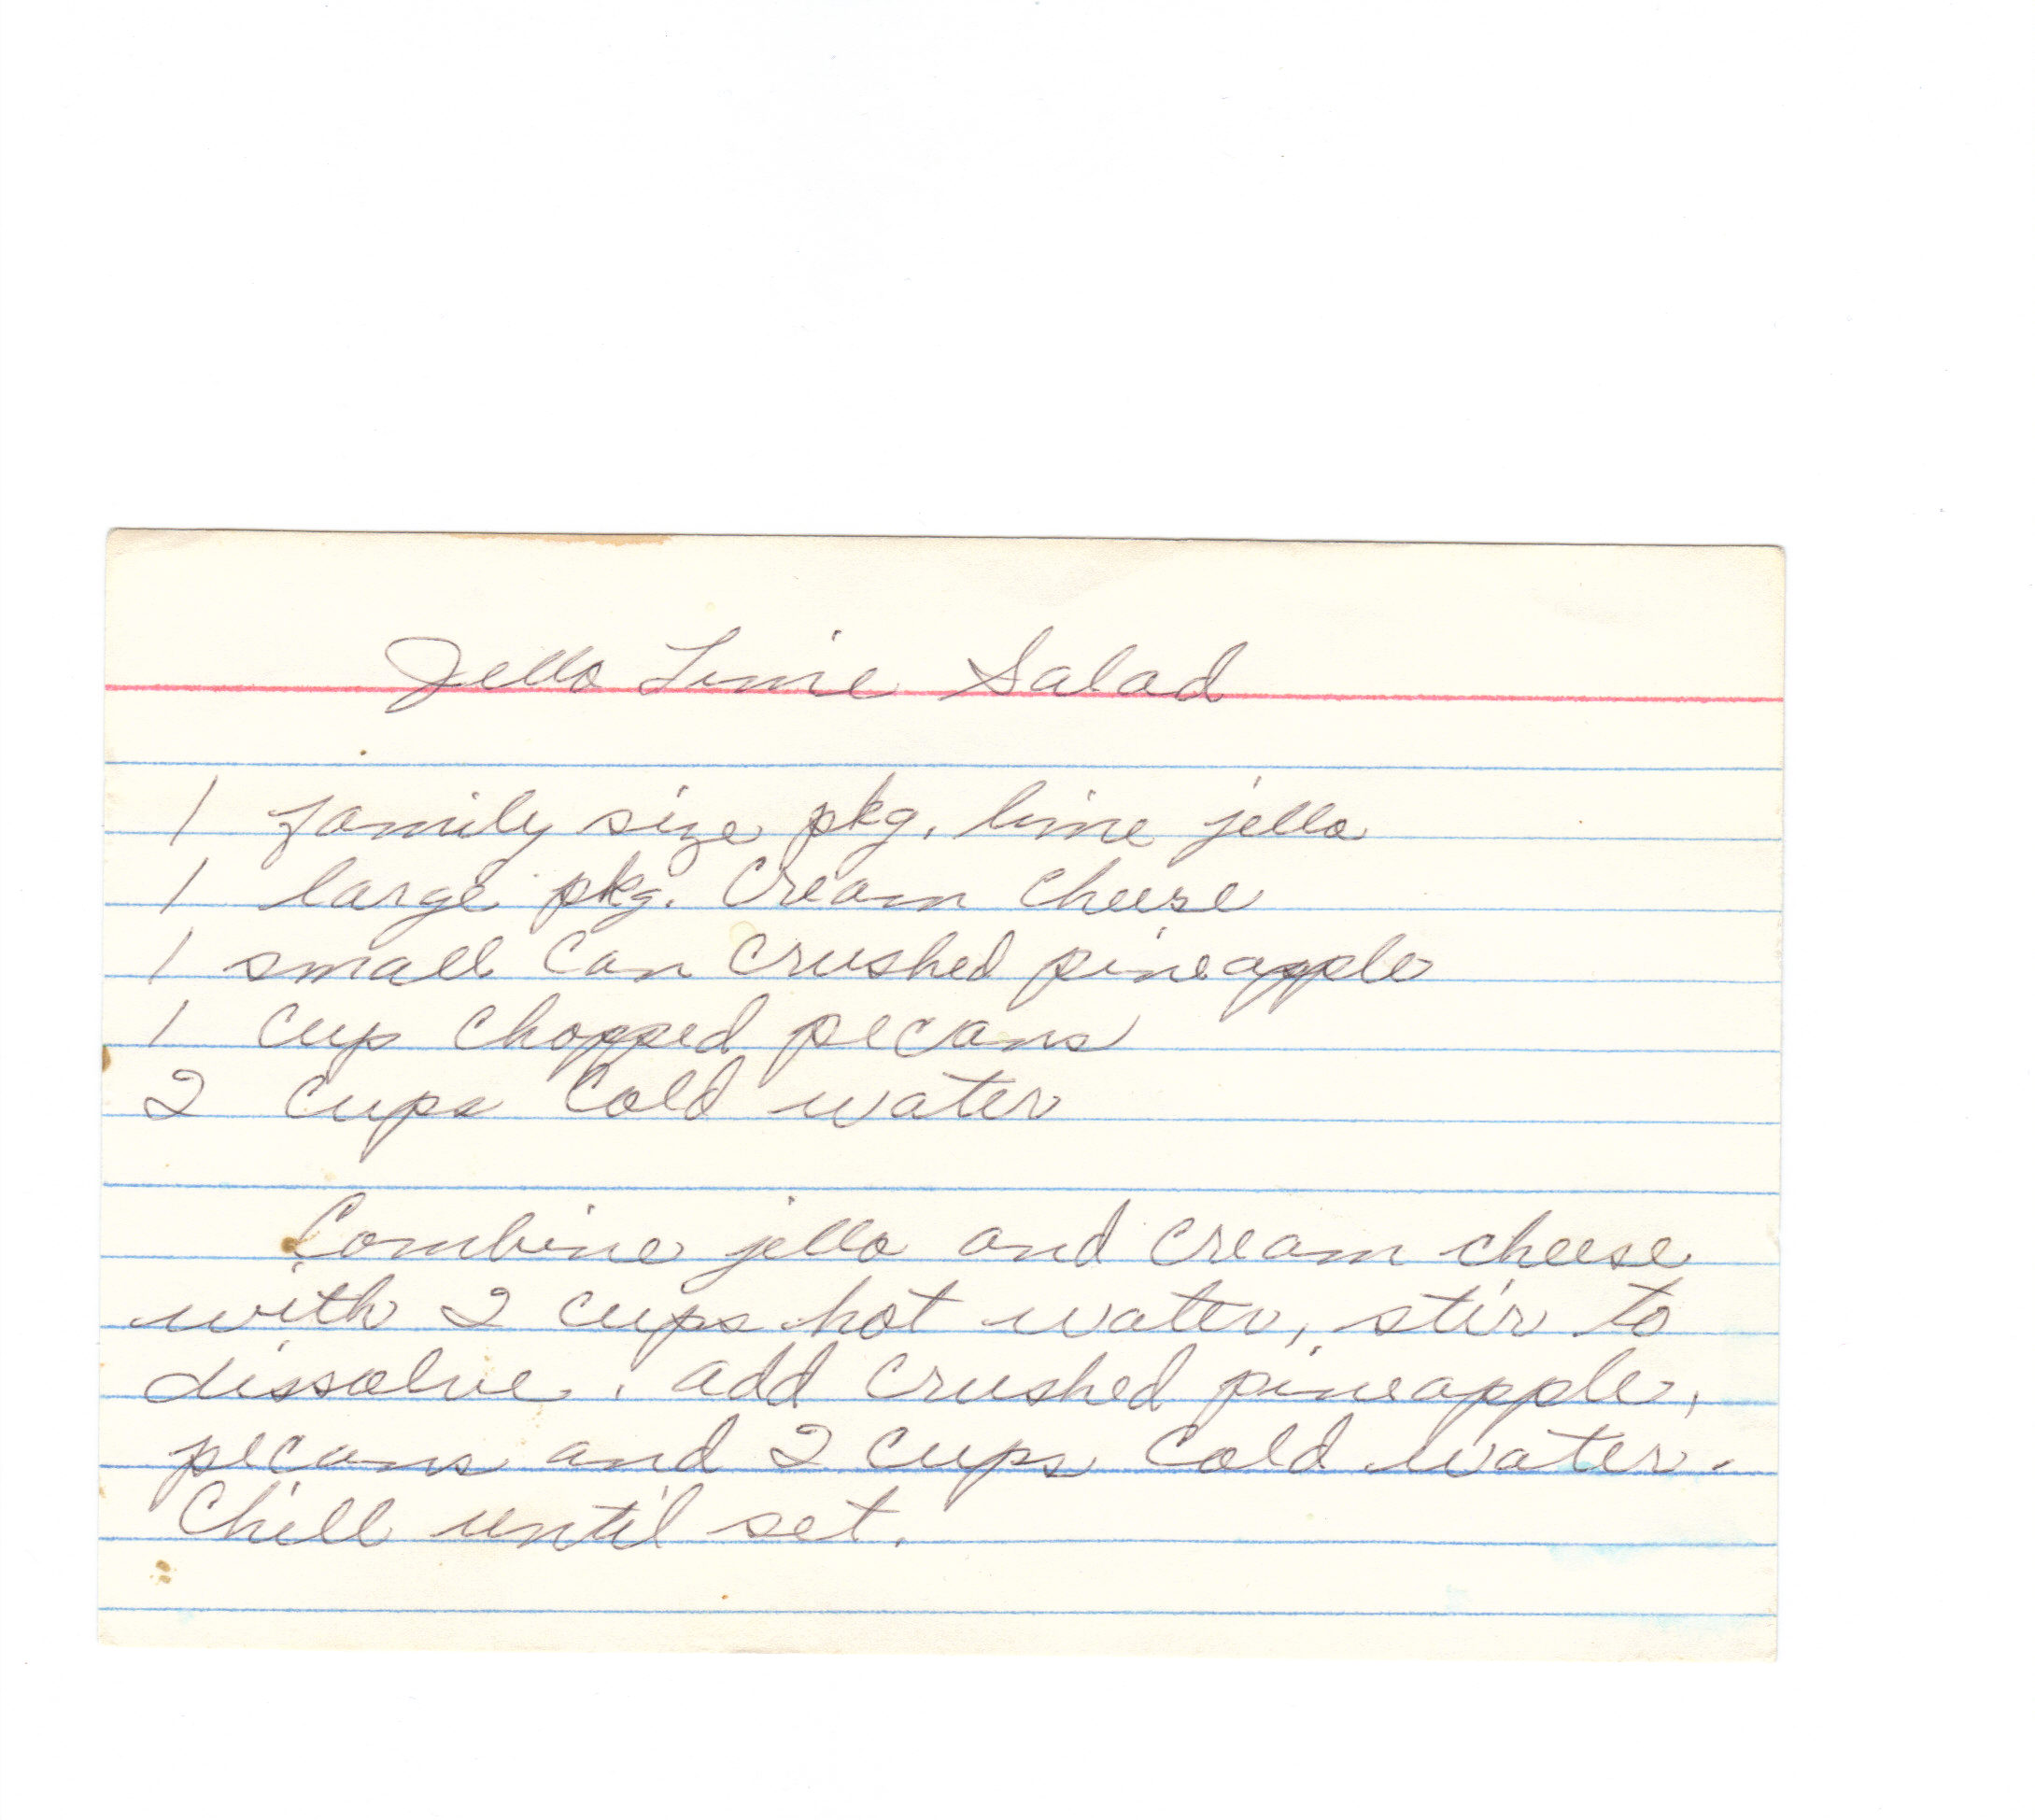 Jello Lime Salad
1 family size pkg. lime jello
1 large pkg. cream cheese
1 small can crushed pineapple
1 cup chopped pecans
2 cups cold water
Combine jello and cream cheese
with 2 cups hot water, stir to
dissolve. add crushed pineapple,
pecans and 2 cups cold water.
Chill until set.